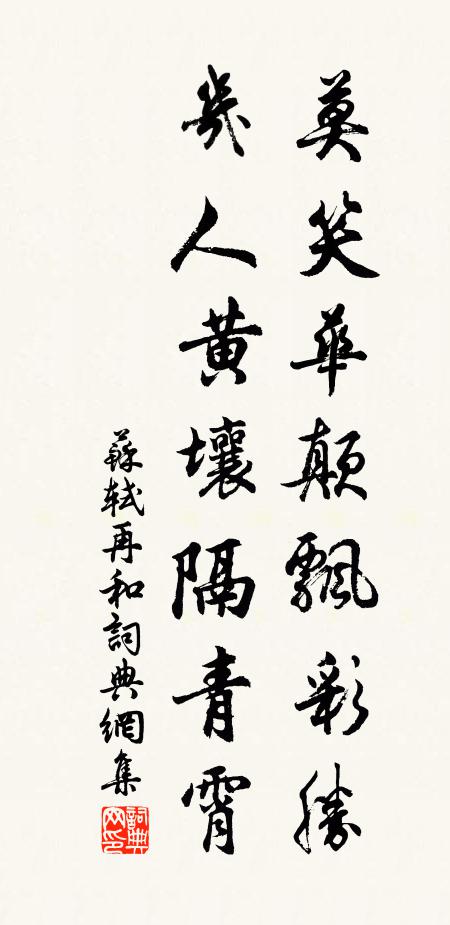 莫笑華顛飄彩勝
幾人黃壤隔青霄
蘇軾再和詞典網集
詞典網印